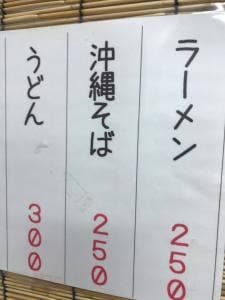 ラーメン
250
沖縄そば
250
うどん
300